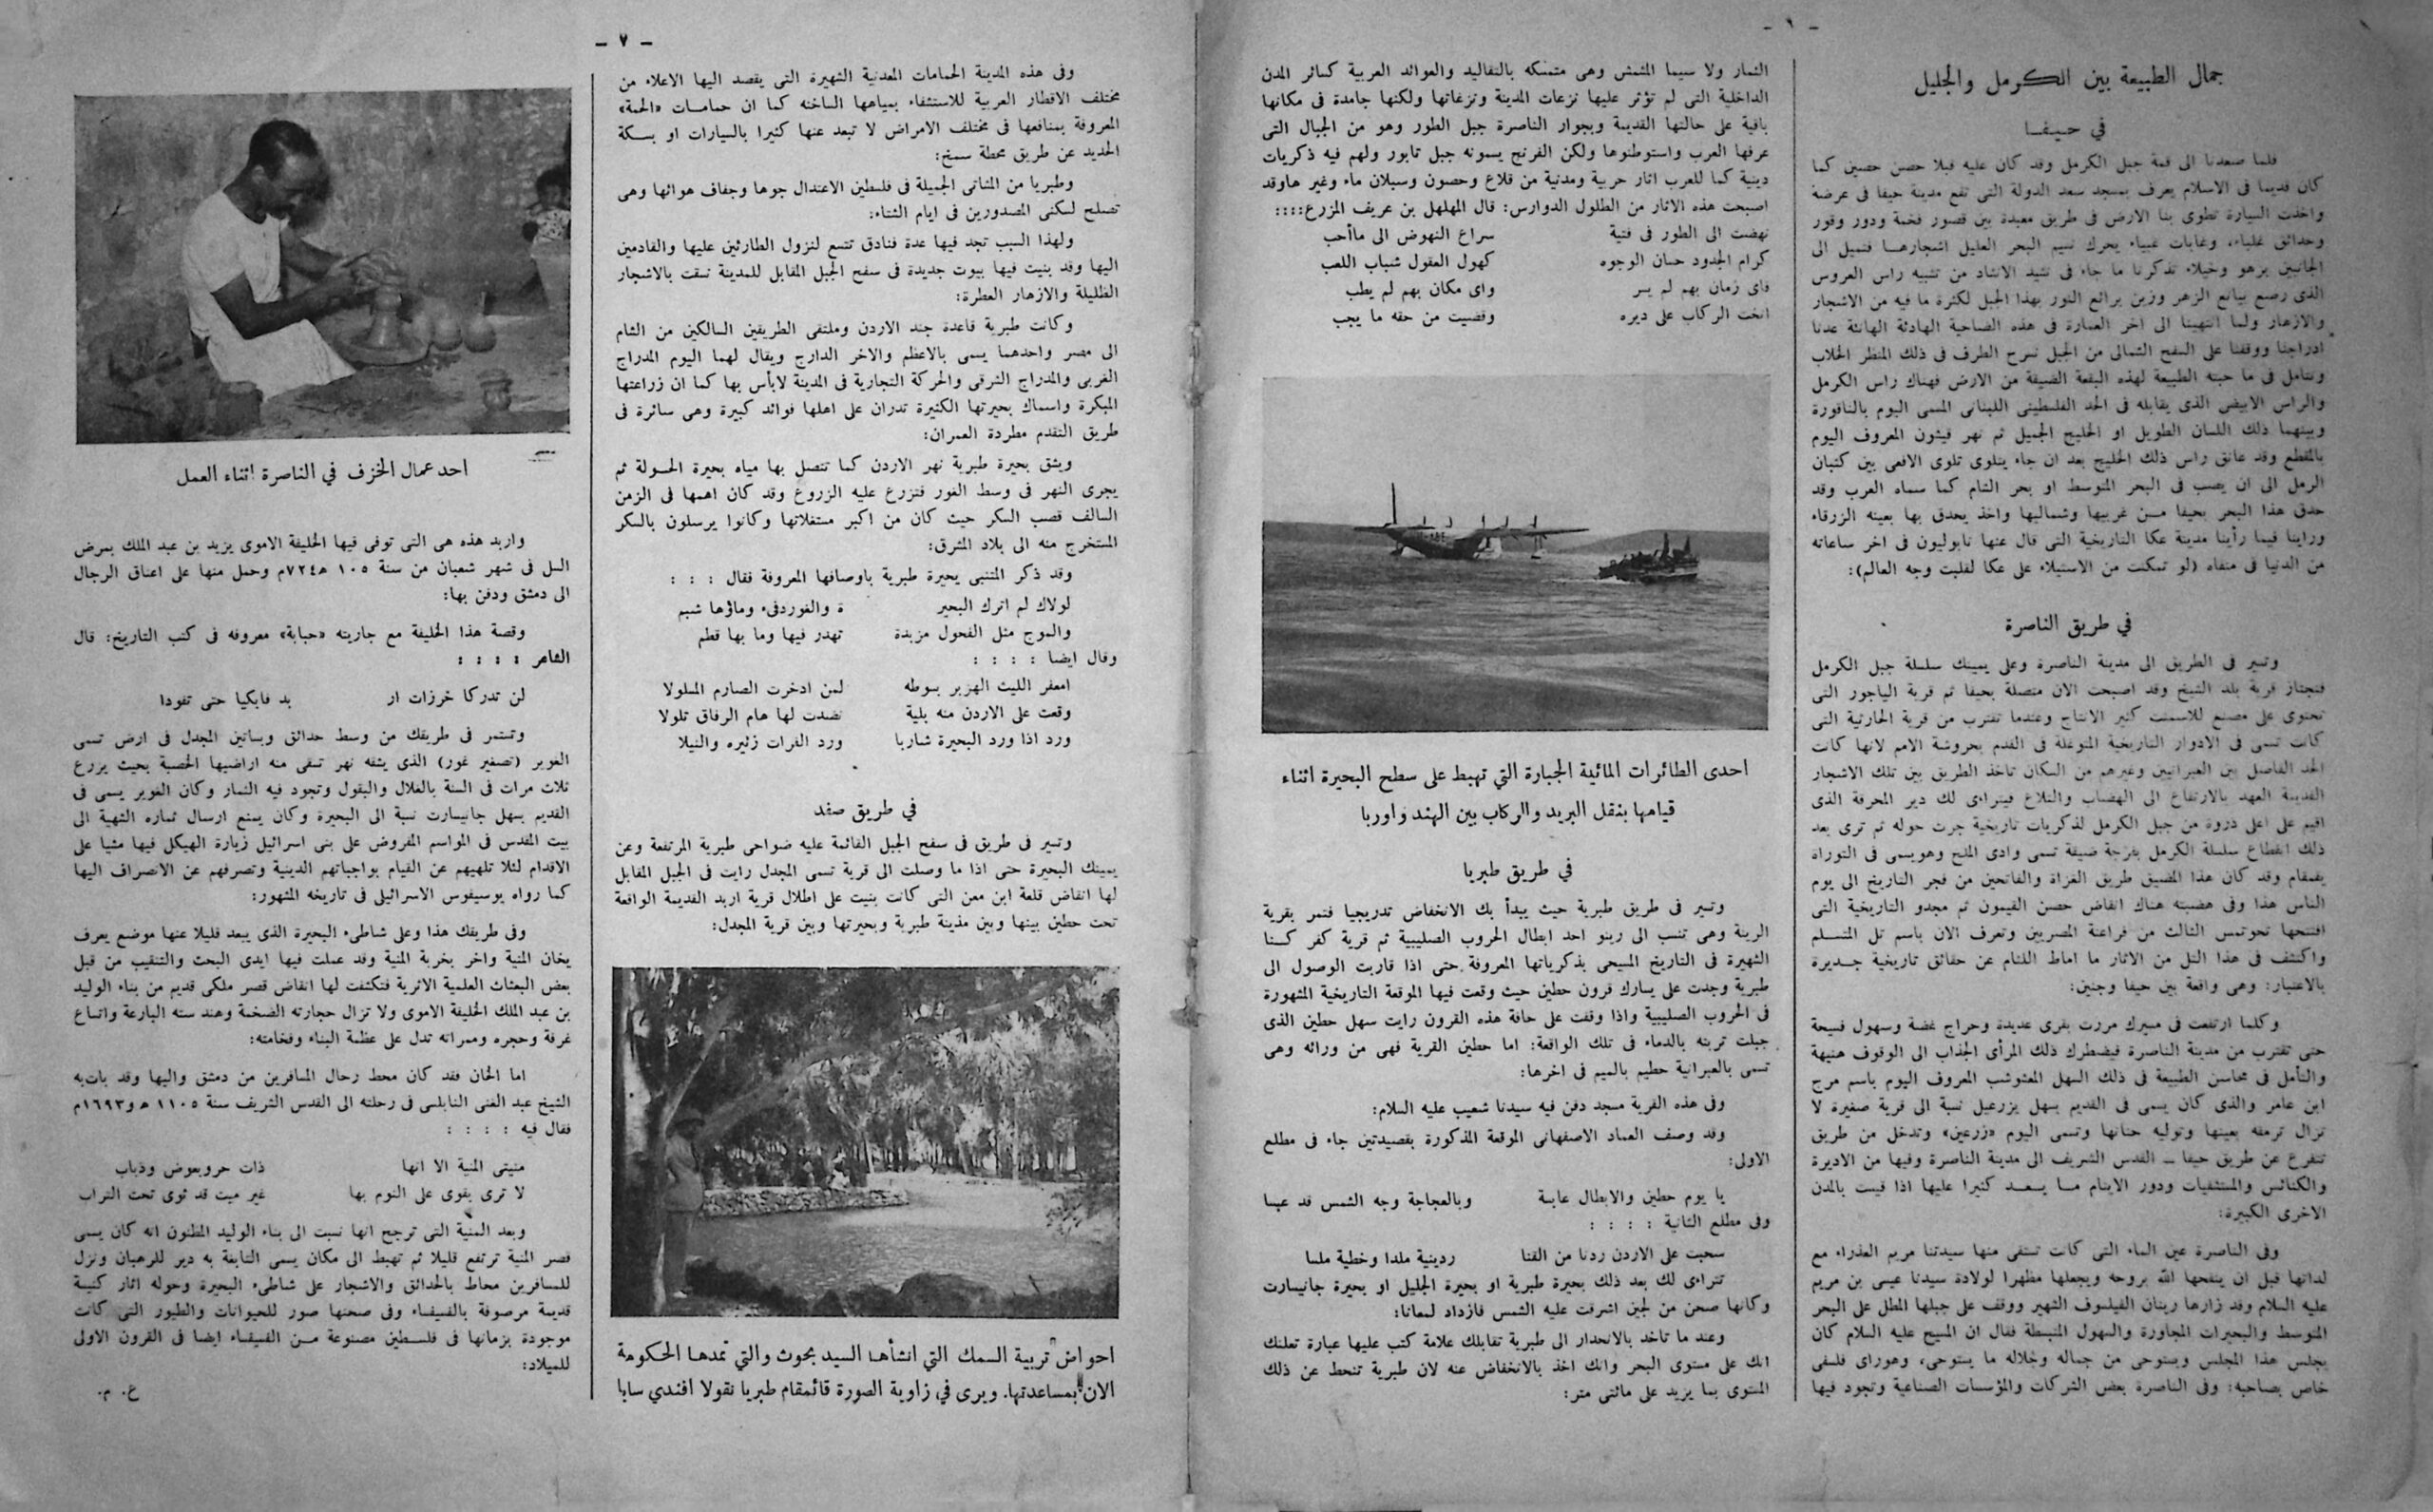 - ٦ -
جمال الطبيعة بين الكرمل والجليل
في حيفا
فلما صعدنا الى قمة جبل الكرمل وقد كان عليه قبلا حصن حصين كما
كان قديما فى الاسلام يعرف بمسجد سعد الدولة التى تقع مدينة حيفا فى عرضة
واخذت السيارة تطوى بنا الارض فى طريق معبدة بين قصور فخمة ودور وقور
وحدائق غلباء، وغابات غبياء يحرك نسيم البحر العليل اشجارهـا فتميل الى
الجانبين بزهو وخيلاء تذكرنا ما جاء فى نشيد الانشاد من تشبيه راس العروس
الذى رصع بيانع الزهر وزين برائع النور بهذا الجبل لكثرة ما فيه من الاشجار
والازهار ولما انتهينا الى اخر العمارة فى هذه الضاحية الهادئة الهانئة عدنا
ادراجنا ووقفنا على السفح الشمالى من الجبل نسرح الطرف فى ذلك المنظر الخلاب
ونتامل فى ما حبته الطبيعة لهذه البقعة الضيقة من الارض فهناك راس الكرمل
والراس الابيض الذى يقابله فى الحد الفلسطينى اللبنانى المسمى اليوم بالناقورة
وبينهما ذلك اللسان الطويل او الخليج الجميل ثم نهر قيشون المعروف اليوم
بالمقطع وقد عانق راس ذلك الخليج بعد ان جاء يتلوى تلوى الافعى بين كثبان
الرمل الى ان يصب فى البحر المتوسط او بحر الشام كما سماه العرب وقد
حدق هذا البحر بحيفا مـن غربيها وشماليها واخذ يحدق بها بعينه الزرقاء
وراينا فيما رأينا مدينة عكا التاريخية التى قال عنها نابوليون فى اخر ساعاته
من الدنيا فى منفاه (لو تمكنت من الاستيلاء على عكا لقلبت وجه العالم):
في طريق الناصرة
وتسير فى الطريق الى مدينة الناصرة وعلى يمينك سلسلة جبل الكرمل
فتجتاز قرية بلد الشيخ وقد اصبحت الان متصلة بحيفا ثم قرية الياجور التى
تحتوى على مصنع للاسمنت كثير الانتاج وعندما تقترب من قرية الحارثية التى
كانت تسمى فى الادوار التاريخية المتوغلة فى القدم بحروشة الامم لانها كانت
الحد الفاصل بين العبرانيين وغيرهم من السكان تاخذ الطريق بين تلك الاشجار
القديمة العهد بالارتفاع الى الهضاب والتلاع فيتراءى لك دير المحرقة الذى
اقيم على اعلى ذروة من جبل الكرمل لذكريات تاريخية جرت حوله ثم ترى بعد
ذلك انقطاع سلسلة الكرمل بفرجة ضيقة تسمى وادى الملح وهويسمى فى التوراة
يقمقام وقد كان هذا المضيق طريق الغزاة والفاتحين من فجر التاريخ الى يوم
الناس هذا وفى هضبته هناك انقاض حصن القيمون ثم مجدو التاريخية التى
افتتحها تحوتمس الثالث من فراعنة المصريين وتعرف الان باسم تل المتسـلم
واكتشف فى هذا التل من الاثار ما اماط اللثام عن حقائق تاريخية جـديرة
بالاعتبار: وهى واقعة بين حيفا وجنين:
وكلما ارتفعت فى مسيرك مررت بقرى عديدة وحراج غضة وسهول فسيحة
حتى تقترب من مدينة الناصرة فيضطرك ذلك المرأى الجذاب الى الوقوف هنيهة
والتأمل فى محاسن الطبيعة فى ذلك السهل المعشوشب المعروف اليوم باسم مرج
ابن عامر والذى كان يسمى فى القديم بسهل يزرعيل نسبة الى قرية صغيرة لا
تزال ترمقه بعينها وتوليه حنانها وتسمى اليوم «زرعين» وتدخل من طريق
تتفرع عن طريق حيفا ــ القدس الشريف الى مدينة الناصرة وفيها من الاديرة
والكنائس والمستشفيات ودور الايتام مـا يـعـد كثيرا عليها اذا قيست بالمدن
الاخرى الكبيرة:
وفى الناصرة عين الماء التى كانت تستقى منها سيدتنا مريم العذراء مع
لداتها قبل ان ينفحها الله بروحه ويجعلها مظهرا لولادة سيدنا عيسى بن مريم
عليه السلام وقد زارها رينان الفيلسوف الشهير ووقف على جبلها المطل على البحر
المتوسط والبحيرات المجاورة والسهول المنبسطة فقال ان المسيح عليه السلام كان
يجلس هذا المجلس ويستوحى من جماله وجلاله ما يستوحى، وهوراى فلسفى
خاص بصاحبه: وفى الناصرة بعض الشركات والمؤسسات الصناعية وتجود فيها
الثمار ولا سيما المشمش وهى متمسكه بالتقاليد والعوائد العربية كسائر المدن
الداخلية التى لم تؤثر عليها نزعات المدينة ونزغاتها ولكنها جامدة فى مكانها
باقية على حالتها القديمة وبجوار الناصرة جبل الطور وهو من الجبال التى
عرفها العرب واستوطنوها ولكن الفرنج يسمونه جبل تابور ولهم فيه ذكريات
دينية كما للعرب اثار حربية ومدنية من قلاع وحصون وسبلان ماء وغير هاوقد
اصبحت هذه الاثار من الطلول الدوارس: قال المهلهل بن عريف المزرع::::
نهضت الى الطور فى فتية سراع النهوض الى ماأحب
كرام الجدود حسان الوجوه كهول العقول شباب اللعب
فاى زمان بهم لم يسر واى مكان بهم لم يطب
انخت الركاب على ديره وقضيت من حقه ما يجب
احدى الطائرات المائية الجبارة التي تهبط على سطح البحيرة اثناء
قيامها بنقل البريد والركاب بين الهند واوربا
في طريق طبريا
وتسير فى طريق طبرية حيث يبدأ بك الانخفاض تدريجيا فتمر بقرية
الرينة وهى تنسب الى رينو احد ابطال الحروب الصليبية ثم قرية كفر كـنا
الشهيرة فى التاريخ المسيحى بذكرياتها المعروفة حتى اذا قاربت الوصول الى
طبرية وجدت على يسارك قرون حطين حيث وقعت فيها الموقعة التاريخية المشهورة
فى الحروب الصليبية واذا وقفت على حافة هذه القرون رايت سهل حطين الذى
جبلت تربته بالدماء فى تلك الواقعة: اما حطين القرية فهى من ورائه وهى
تسمى بالعبرانية حطيم بالميم فى اخرها:
وفى هذه القرية مسجد دفن فيه سيدنا شعيب عليه السلام:
وقد وصف العماد الاصفهانى الموقعة المذكورة بقصيدتين جاء فى مطلع
الاولى:
يا يوم حطين والابطال عابسة وبالعجاجة وجه الشمس قد عبسا
وفى مطلع الثانية : : : :
سحبت على الاردن ردنا من القنا ردينية ملدا وخطية ملسا
تتراءى لك بعد ذلك بحيرة طبرية او بحيرة الجليل او بحيرة جانيسارت
وكانها صحن من لجين اشرقت عليه الشمس فازداد لمعانا:
وعند ما تاخذ بالانحدار الى طبرية تقابلك علامة كتب عليها عبارة تعلنك
انك على مستوى البحر وانك اخذ بالانخفاض عنه لان طبرية تنحط عن ذلك
المستوى بما يزيد على مائتى متر:
- ٧ -
وفى هذه المدينة الحمامات المعدنية الشهيرة التى يقصد اليها الاعلاء من
مختلف الاقطار العربية للاستشفاء بمياهها الساخنه كما ان حمامـات «الحمة»
المعروفة بمنافعها فى مختلف الامراض لا تبعد عنها كثيرا بالسيارات او بسـكة
الحديد عن طريق محطة سمخ:
وطبريا من المشاتى الجميلة فى فلسطين الاعتدال جوها وجفاف هوائها وهى
تصلح لسكنى المصدورين فى ايام الشتاء:
ولهذا السبب تجد فيها عدة فنادق تتسع لنزول الطارئين عليها والقادمين
اليها وقد بنيت فيها بيوت جديدة فى سفح الجبل المقابل للمدينة نسقت بالاشجار
الظليلة والازهار العطرة:
وكانت طبرية قاعدة جند الاردن وملتقى الطريقين السالكين من الشام
الى مصر واحدهما يسمى بالاعظم والاخر الدارج ويقال لهما اليوم المدراج
الغربى والمدراج الشرقى والحركة التجارية فى المدينة لابأس بها كما ان زراعتها
المبكرة واسماك بحيرتها الكثيرة تدران على اهلها فوائد كبيرة وهى سائرة فى
طريق التقدم مطردة العمران:
ويشق بحيرة طبرية نهر الاردن كما تتصل بها مياه بحيرة الحـولة ثم
يجرى النهر فى وسط الغور فتزرع عليه الزروع وقد كان اهمها فى الزمن
السالف قصب السكر حيث كان من اكبر مستغلاتها وكانوا يرسلون بالسكر
المستخرج منه الى بلاد المشرق:
وقد ذكر المتنبى بحيرة طبرية باوصافها المعروفة فقال : : :
لولاك لم اترك البحير ة والغوردفىء وماؤها شبم
والموج مثل الفحول مزبدة تهدر فيها وما بها قطم
وقال ايضا : : : :
امعفر الليث الهزبر بسوطه لمن ادخرت الصارم المسلولا
وقعت على الاردن منه بلية نضدت لها هام الرفاق تلولا
ورد اذا ورد البحيرة شاربا ورد الفرات زئيره والنيلا
في طريق صفد
وتسير فى طريق فى سفح الجبل القائمة عليه ضواحى طبرية المرتفعة وعن
يمينك البحيرة حتى اذا ما وصلت الى قرية تسمى المجدل رايت فى الجبل المقابل
لها انقاض قلعة ابن معن التى كانت بنيت على اطلال قرية اربد القديمة الواقعة
تحت حطين بينها وبين مدينة طبرية وبحيرتها وبين قرية المجدل:
احواض تربية السمك التي انشأهـا السيد بحوث والتي تمدهـا الحكومة
الان بمساعدتها. ويرى في زاوية الصورة قائمقام طبريا نقولا افندي سابا
احد عمال الخزف في الناصرة اثناء العمل
واربد هذه هى التى توفى فيها الخليفة الاموى يزيد بن عبد الملك بمرض
السل فى شهر شعبان من سنة ١٠٥ هـ٧٢٤م وحمل منها على اعناق الرجال
الى دمشق ودفن بها:
وقصة هذا الخليفة مع جاريته «حبابة» معروفه فى كتب التاريخ: قال
الشاعر : : : :
لن تدركا خرزات ار بد فابكيا حتى تفودا
وتستمر فى طريقك من وسط حدائق وبساتين المجدل فى ارض تسمى
الغوير (تصغير غور) الذى يشقه نهر تسقى منه اراضيها الخصبة بحيث يزرع
ثلاث مرات فى السنة بالغلال والبقول وتجود فيه الثمار وكان الغوير يسمى فى
القديم بسهل جانيسارت نسبة الى البحيرة وكان يمنع ارسال ثماره الشهية الى
بيت المقدس فى المواسم المفروض على بنى اسرائيل زيارة الهيكل فيها مشيا على
الاقدام لئلا تلهيهم عن القيام بواجباتهم الدينية وتصرفهم عن الانصراف اليها
كما رواه يوسيفوس الاسرائيلى فى تاريخه المشهور:
وفى طريقك هذا وعلى شاطىء البحيرة الذى يبعد قليلا عنها موضع يعرف
بخان المنية واخر بخربة المنية وقد عملت فيها ايدى البحث والتنقيب من قبل
بعض البعثات العلمية الاثرية فتكشفت لها انقاض قصر ملكى قديم من بناء الوليد
بن عبد الملك الخليفة الاموى ولا تزال حجارته الضخمة وهند سته البارعة واتساع
غرفة وحجره وممراته تدل على عظمة البناء وفخامته:
اما الخان فقد كان محط رحال المسافرين من دمشق واليها وقد بات‌به
الشيخ عبد الغنى النابلسى فى رحلته الى القدس الشريف سنة ١١٠٥ هـ و١٦٩٣م
فقال فيه : : : :
منيتى المنية الا انها ذات حروبعوض وذباب
لا ترى يقوى على النوم بها غير ميت قد ثوى تحت التراب
وبعد المنية التى ترجح انها نسبت الى بناء الوليد المظنون انه كان يسمى
قصر المنية ترتفع قليلا ثم تهبط الى مكان يسمى التابغة به دير للرهبان ونزل
للمسافرين محاط بالحدائق والاشجار على شاطىء البحيرة وحوله اثار كنيسة
قديمة مرصوفة بالفسيفساء وفى صحنها صور للحيوانات والطيور التى كانت
موجودة بزمانها فى فلسـطين مصنوعة مـن الفسيفساء ايضا فى القرون الاولى
للميلاد:
ع. م.